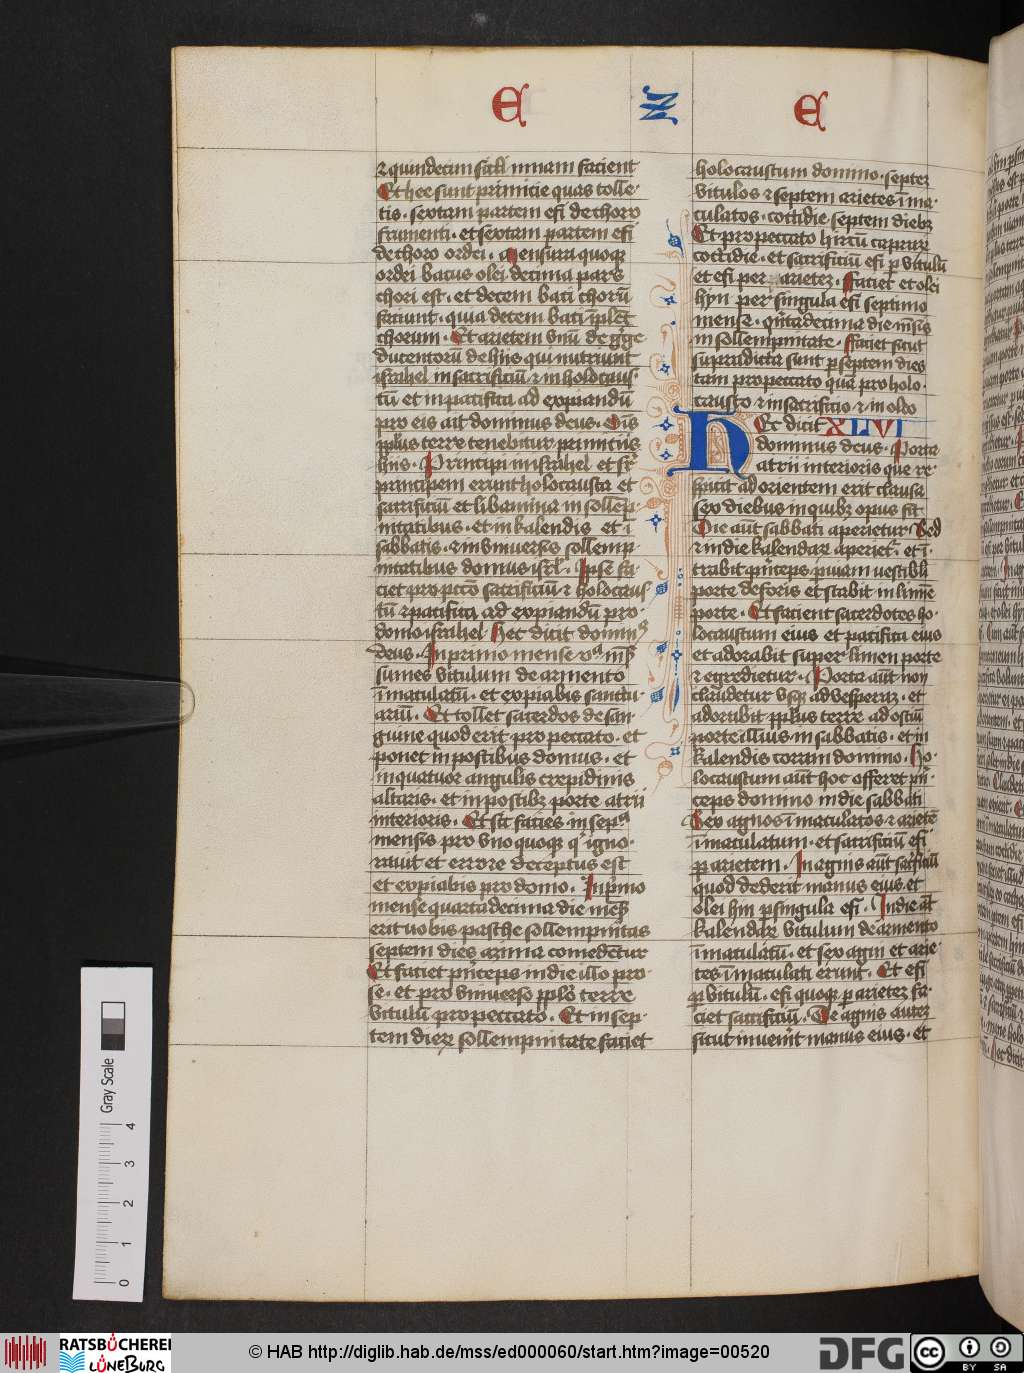 E Z E
⁊ quindecim sicli mnam facient
Et hee sunt primicie quas tolle-
tis · sextam partem efi de choro
frumenti · et sextam partem efi
de choro ordei · Mensura quoqꝫ
ordei batus olei decima pars
chori est · et decem bati chorū
faciunt · quia decem bati īplēt
chorum · Et arietem vnū de g̾ge
ducentorū de hijs qui nutriunt
israhel in sacrificiū ⁊ in holocaus
tū et in pacifica ad expiandū
pro eis ait dominus deus · Oīs
pplus terre tenebitur primicijs
hijs · Principi in israhel et sr̄
principem erunt holocausta et
sacrificiū et libamina in sollēp-
nitatibus · et in kalendis et ī
sabbatis · ⁊ in vniuersis sollemp
nitatibus domus isrl̄ · Ipse fa
ciet pro pctō sacrificiū ⁊ holocaus
tū ⁊ pacifica ad expiandū pro
domo israhel Hec dicit dominꝰ
deus · In primo mense vᵃ mēs
sumes vitulum de armento
īmaculatū · et expiabis sanctu-
ariū · Et tollet sacerdos de san
guine quod erit pro peccato · et
ponet in postibus domus · et
in quatuor angulis crepidinis
altaris · et in postibꝫ porte atrij
interioris · Et sic facies in sepᵃ
mensis pro vno quoqꝫ qͥ igno-
rauit et errore deceptus est
et expiabis pro domo · In pͥmo
mense quarta decima die mēs
erit uobis pasche sollempnitas
septem dies azima comedētur
Et faciet pͥnceps in die illo pro
se · et pro vniuerso pplō terre
vitulū pro peccato · Et in sep-
tem dieꝝ sollempnitate faciet
holocaustum domino · septeꝫ
vitulos ⁊ septem arietes īma-
culatos · cottidie septem diebꝫ
Et pro peccato hircū capraꝝ
cottidie · et sacrificiū efi p̱ vitulū
et efi per arietez · Faciet et olei
hyn per singula efi Septimo
mense · qͥnta decima die mēsis
in sollempnitate · Faciet sicut
supradicta sunt p̱ septem dies
tam pro peccato quā pro holo-
causto ⁊ in sacrificio ⁊ in oleo
Hec dicit XLVI
dominus deus · Porta
atrij interioris que re-
spicit ad orientem erit clausa
sex diebus in quibꝫ opus fit
Die aūt sabbati aperietur · Sed
⁊ in die kalendaꝝ aperiet᷑ · et ī-
trabit pͥnceps p̱ uiam vestibli
porte deforis et stabit in limīe
porte · Et facient sacerdotes ho-
locaustum eius et pacifica eius
et adorabit super limen porte
⁊ egredietur · Porta aūt non
claudetur vsqꝫ ad vesperaꝫ · et
adorabit pplus terre ad ostiū
porte illius in sabbatis · et in
kalendis coram domino · Ho-
locaustum aūt hoc offeret pͥn-
ceps domino in die sabbati
Sex agnos īmaculatos ⁊ arietē
īmaculatum · et sacrificiū efi
p̱ arietem · In agnis aūt sac̾ficiū
quod dederit manus eius et
olei hyn p̱ singula efi · In die aūt
kalendaꝝ vitulum de armento
īmaculatū · et sex agni et arie-
tes īmaculati erunt · Et efi
p̱ vitulū · efi quoqꝫ p̱ arietez fa-
ciet sacrificiū · De agnis autez
sicut inuenͥit manus eius · et
Gray Scale
0 1 2 3 4
RATSBÜCHEREI
LÜNEBURG
© HAB http://diglib.hab.de/mss/ed000060/start.htm?image=00520
DFG
cc BY SA